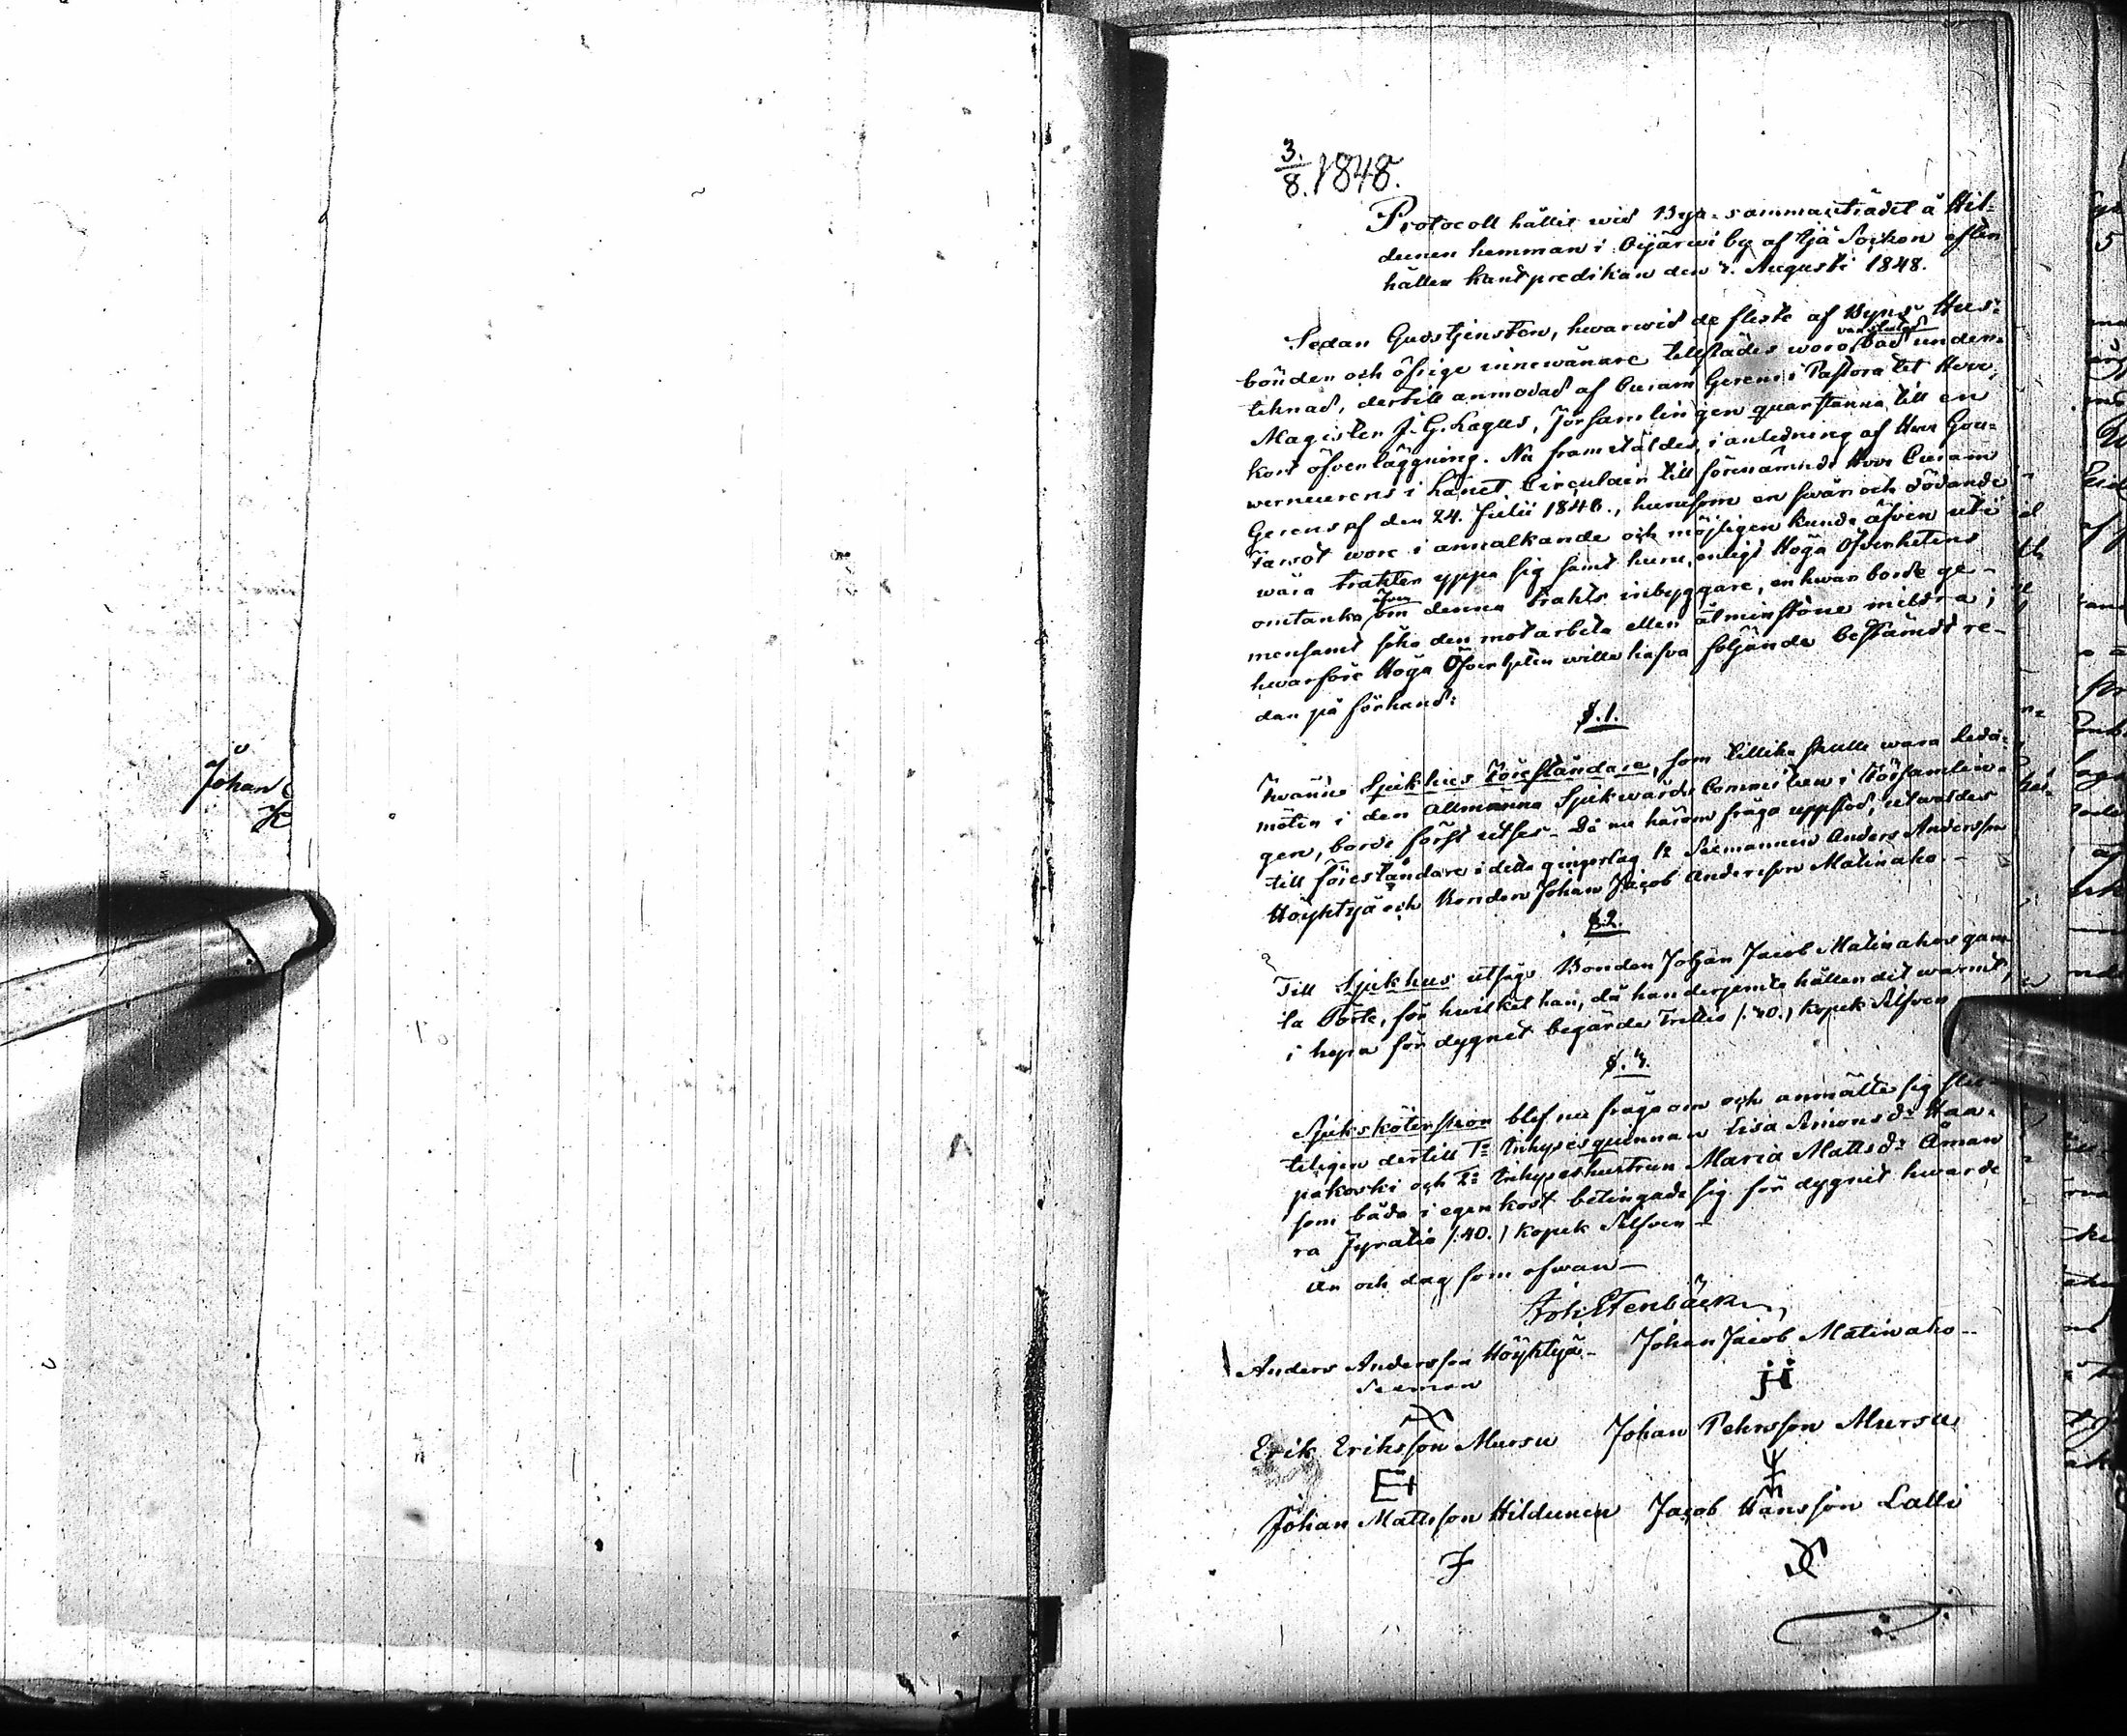 Johan
3/8. 1848.
Protocoll hållit wid Bya-sammanträdet å Hil-
dunen hemman i Oijärwi by af Ijo Socken efter
hållen bandpredikan den 3. Augusti 1848.
Sedan Gudstjensten, hwarwid de fleste af Byns Hus-
bönder och öfrige innewånare tillstädes woro, slutad bad under-
teknad, dertill anmodad af Curam Gerens i Pastoratet Herr
Magister J. G. Lagus, Församlingen quarstanna till en
kort öfverläggning. Nu framstäldes, i anledning af Herr Gou-
verneurens i Länet Circulair till förenämnde Herr Curam
Gerens af den 24. Julii 1848., hurusom en swår och dödande
Farsot wore i annalkande och möjligen kunde äfven uti
wåra trakter yppa sig samt huru, enligt Höga Öfverhetens
omtanka äfven om denna trakts inbyggare, en hwar borde ge-
mensamt söka den motarbeta eller åtminstone mildra;
hwarföre Höga Öfverheten wille hafva följande bestämdt re-
dan på förhand:
§.1.
Twänne Sjukhus Föreståndare, som tillika skulle wara Leda-
möter i den Allmänna Sjukwårds Committen i Församlin-
gen, borde först utses. Då nu härom fråga uppstod, utwaldes
till föreståndare i detta gingerlag Sexmannen Anders Andersson
Höyhtyä och Bonden Johan Jacob Andersson Matinaho.
§.2.
Till Sjukhus utsågs Bonden Johan Jacob Matinahos gam-
la Pörte, för hwilket han, då han derjemte håller det warmt,
i hyra för dygnet begärde Trettio /:30./ kopek Silfver
§.3.
Sjuksköterskor blef nu fråga om och anmälte sig slu-
teligen dertill 1:o Inhyses qvinnan Lisa Simonsd:r Haa-
pakoski och 2:o Inhyseshustrun Maria Mattsd:r Åman
som båda i egen kost betingade sig för dygnet hwarde-
ra Fyratio /:40./ kopek Silfver
År och dag som ofwan
Joh: Stenbäck
Anders Andersson Höyhtyä Johan Jacob Matinaho
Sexman
Erik Eriksson Mursu Johan Pehrsson Mursu
Johan Mattsson Hildunen Jacob Hansson Lalli